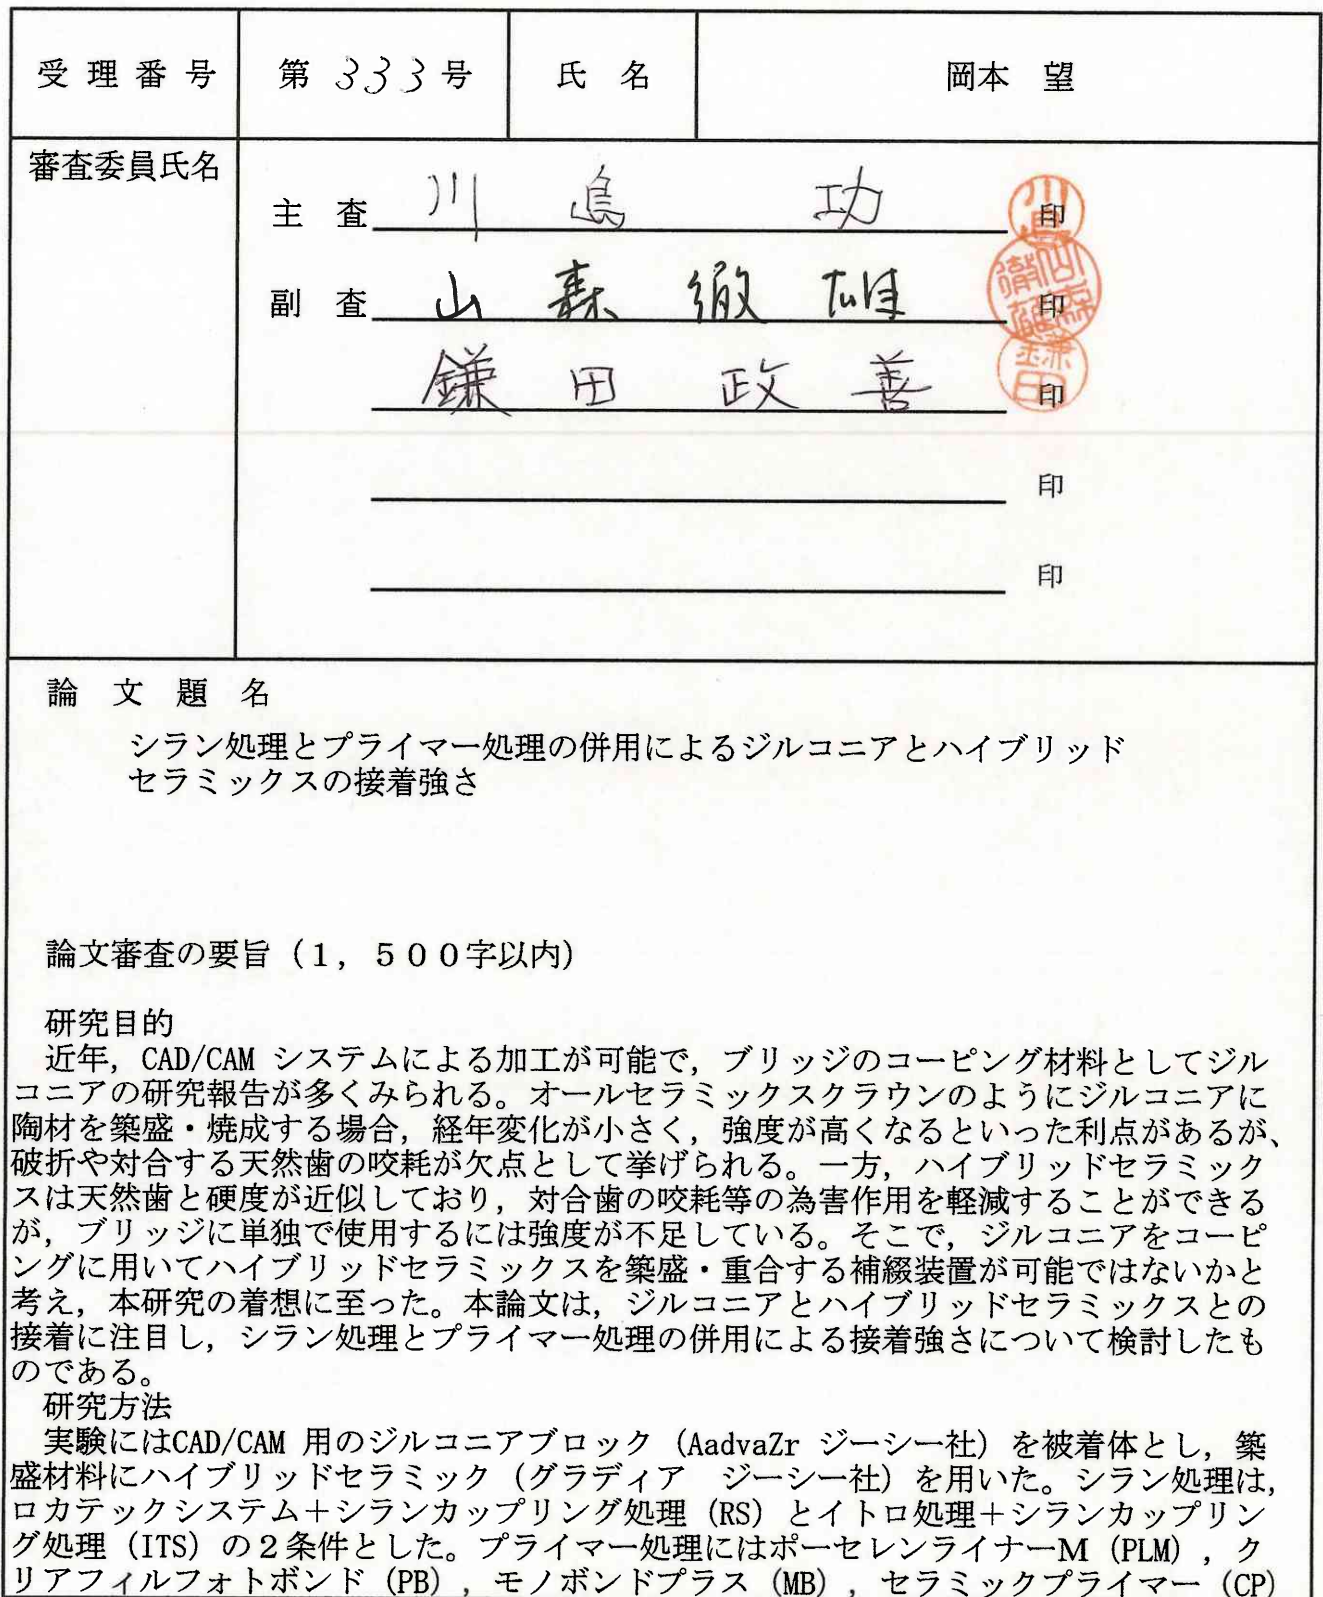 受理番号 第333号 氏名 岡本 望
審査委員氏名
主査 川島 功 印
副査 山森徹雄 印
鎌田政善 印
印
印
論文題名
シラン処理とプライマー処理の併用によるジルコニアとハイブリッド
セラミックスの接着強さ
論文審査の要旨（1，500字以内）
研究目的
近年，CAD/CAM システムによる加工が可能で，ブリッジのコーピング材料としてジル
コニアの研究報告が多くみられる。オールセラミックスクラウンのようにジルコニアに
陶材を築盛・焼成する場合，経年変化が小さく，強度が高くなるといった利点があるが、
破折や対合する天然歯の咬耗が欠点として挙げられる。一方，ハイブリッドセラミック
スは天然歯と硬度が近似しており，対合歯の咬耗等の為害作用を軽減することができる
が，ブリッジに単独で使用するには強度が不足している。そこで，ジルコニアをコーピ
ングに用いてハイブリッドセラミックスを築盛・重合する補綴装置が可能ではないかと
考え，本研究の着想に至った。本論文は，ジルコニアとハイブリッドセラミックスとの
接着に注目し，シラン処理とプライマー処理の併用による接着強さについて検討したも
のである。
研究方法
実験にはCAD/CAM 用のジルコニアブロック（AadvaZr ジーシー社）を被着体とし，築
盛材料にハイブリッドセラミック（グラディア　ジーシー社）を用いた。シラン処理は，
ロカテックシステム＋シランカップリング処理（RS）とイトロ処理＋シランカップリン
グ処理（ITS）の２条件とした。プライマー処理にはポーセレンライナーM（PLM）, ク
リアフィルフォトボンド（PB）, モノボンドプラス（MB）, セラミックプライマー（CP）